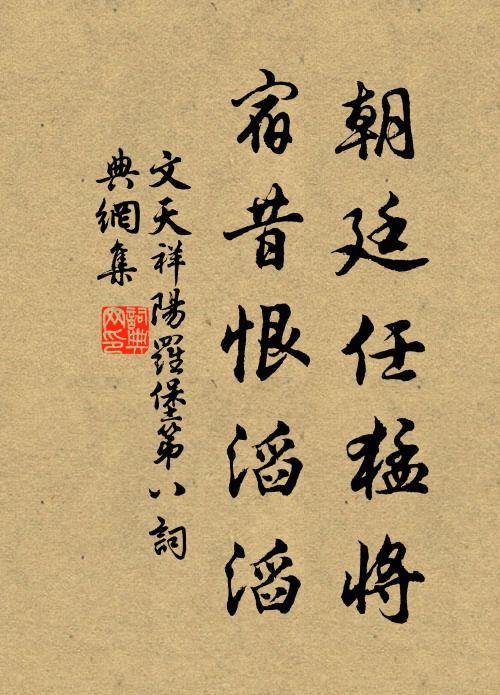 朝廷任猛将
宿昔恨滔滔
文天祥陽羅堡第八詞
典網集
詞典
网印